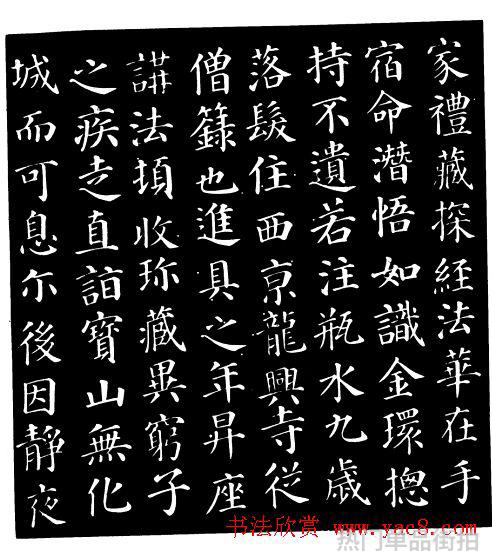 家禮藏探經法華在手
宿命潛悟如識金環揔
持不遺若注瓶水九歲
落髮住西亰龍興寺從
僧籙也進具之年昇座
講法頓收珍藏異窮子
之疾走直詣寶山無化
城而可息尒後因靜夜
书法欣赏 www.yac8.com
热门单品街拍